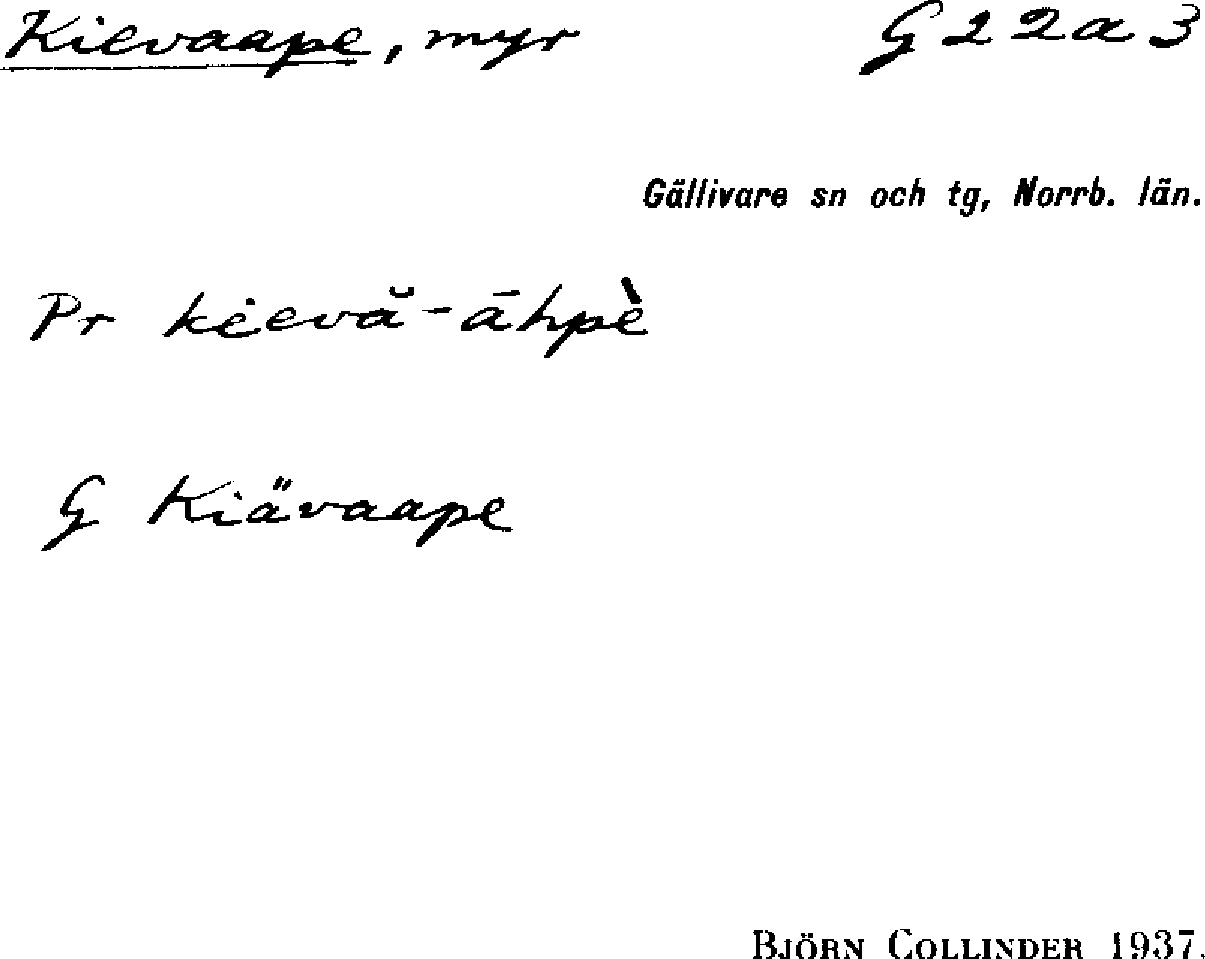 Kievaape, myr G 22a 3
Gällivare sn och tg, Norrb. län.
Pr kievă-āhpè
G Kiävaape
BJÖRN COLLINDER 1937.